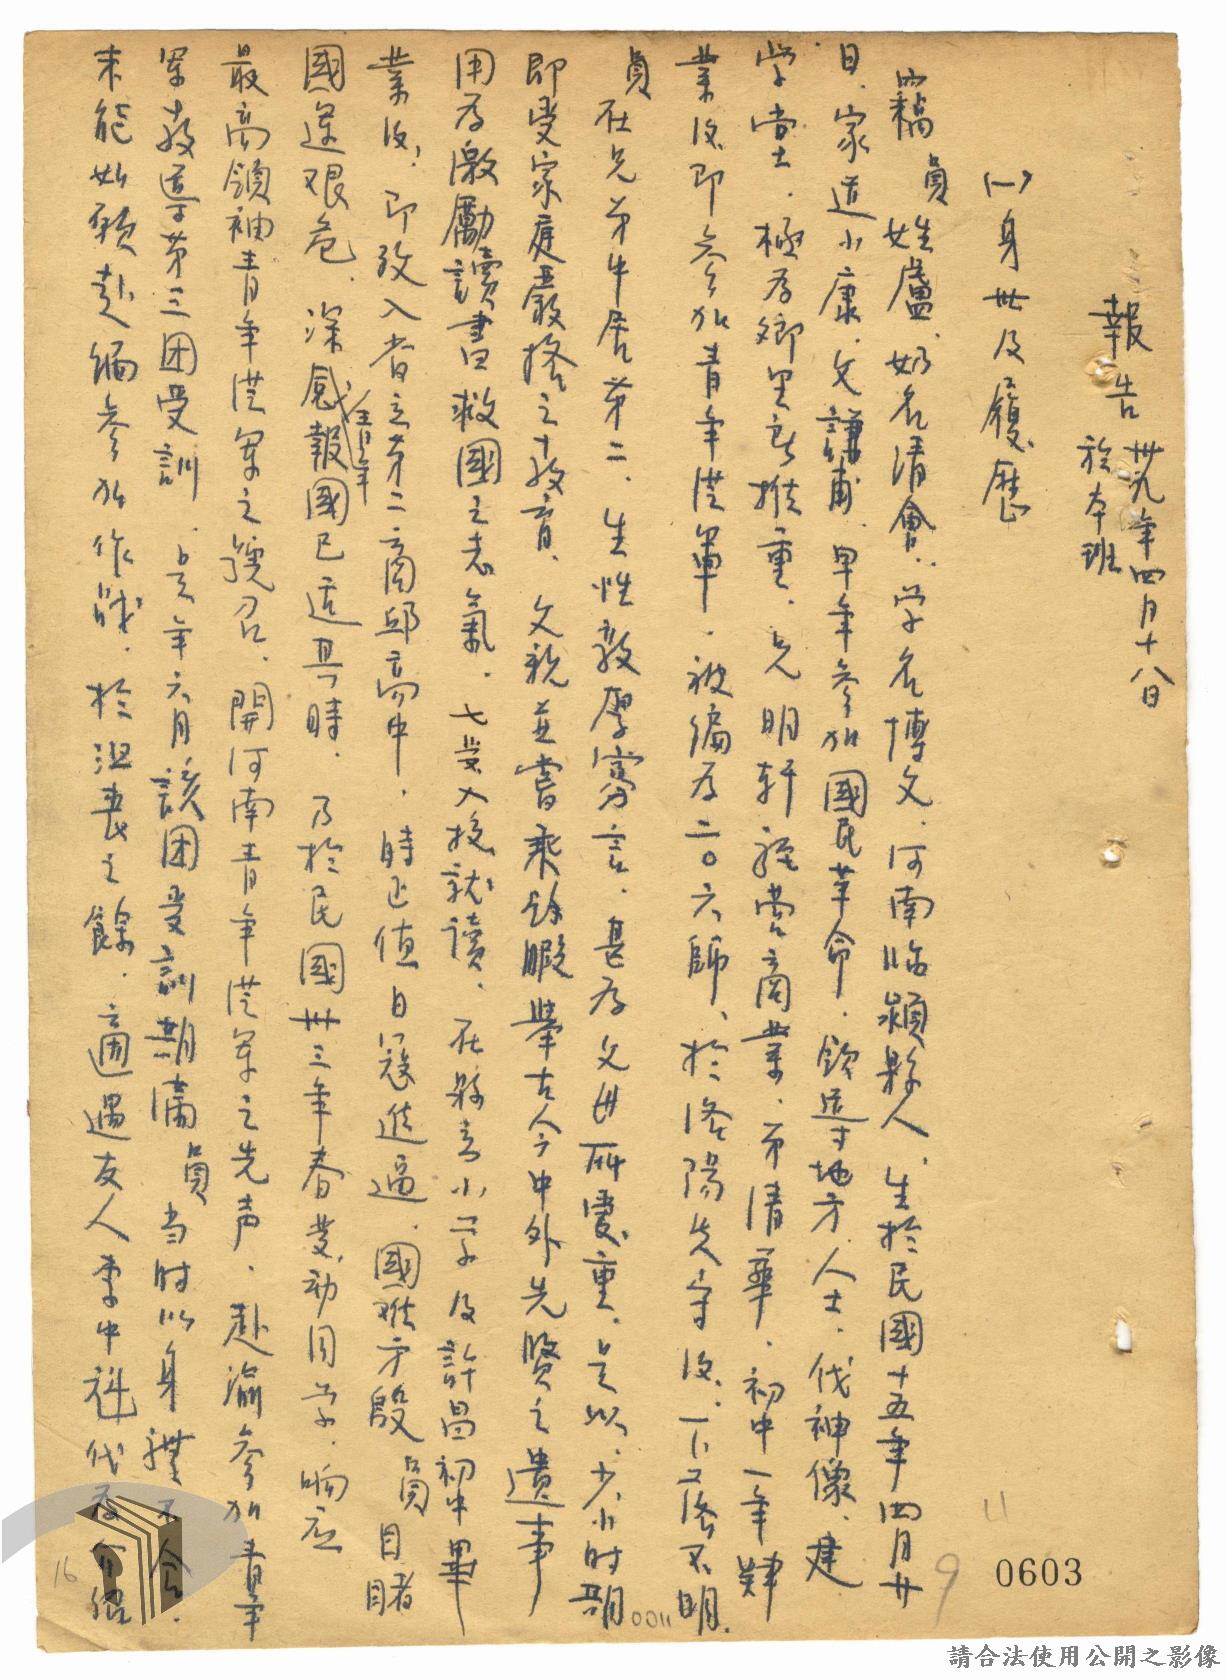 報告 卅九年四月十八日
於本班
(一)身世及履歷
員姓盧、奶名清會、学名博文、河南臨潁縣人、生於民國十五年四月廿
日、家道小康、父謙甫、早年參加國民革命、領導地方人士、伐神像、建
学堂、極為鄉里所推重、兄明軒經營商業、弟清華、初中一年肄
業後即參加青年從軍、被編為二〇六師、於洛陽失守後、下落不明、
員在兄弟中居第二、生性敦厚寡言、甚為父母所愛重、是以、少小時期
即受家庭嚴格之教育、父親並嘗乘餘暇舉古今中外先賢之遺事
用為激勵讀書救國之志氣、七歲入校就讀、在縣立小学及許昌初中畢
業後、即考入省立第二商邱高中、時正值日寇進逼、國難方殷員目睹
國運艱危、深感青年報國已適其時、乃於民國卅三年春發動同学、响应
最高領袖青年從軍之號召、開河南青年從軍之先声、赴渝參加青年
軍教導第三团受訓、是年六月該团受訓期滿員当时以身體不合、
未能如願赴緬參加作戰、於沮喪之餘、適遇友人李中 代為介紹
16
0011
11
9
0603
請合法使用公開之影像